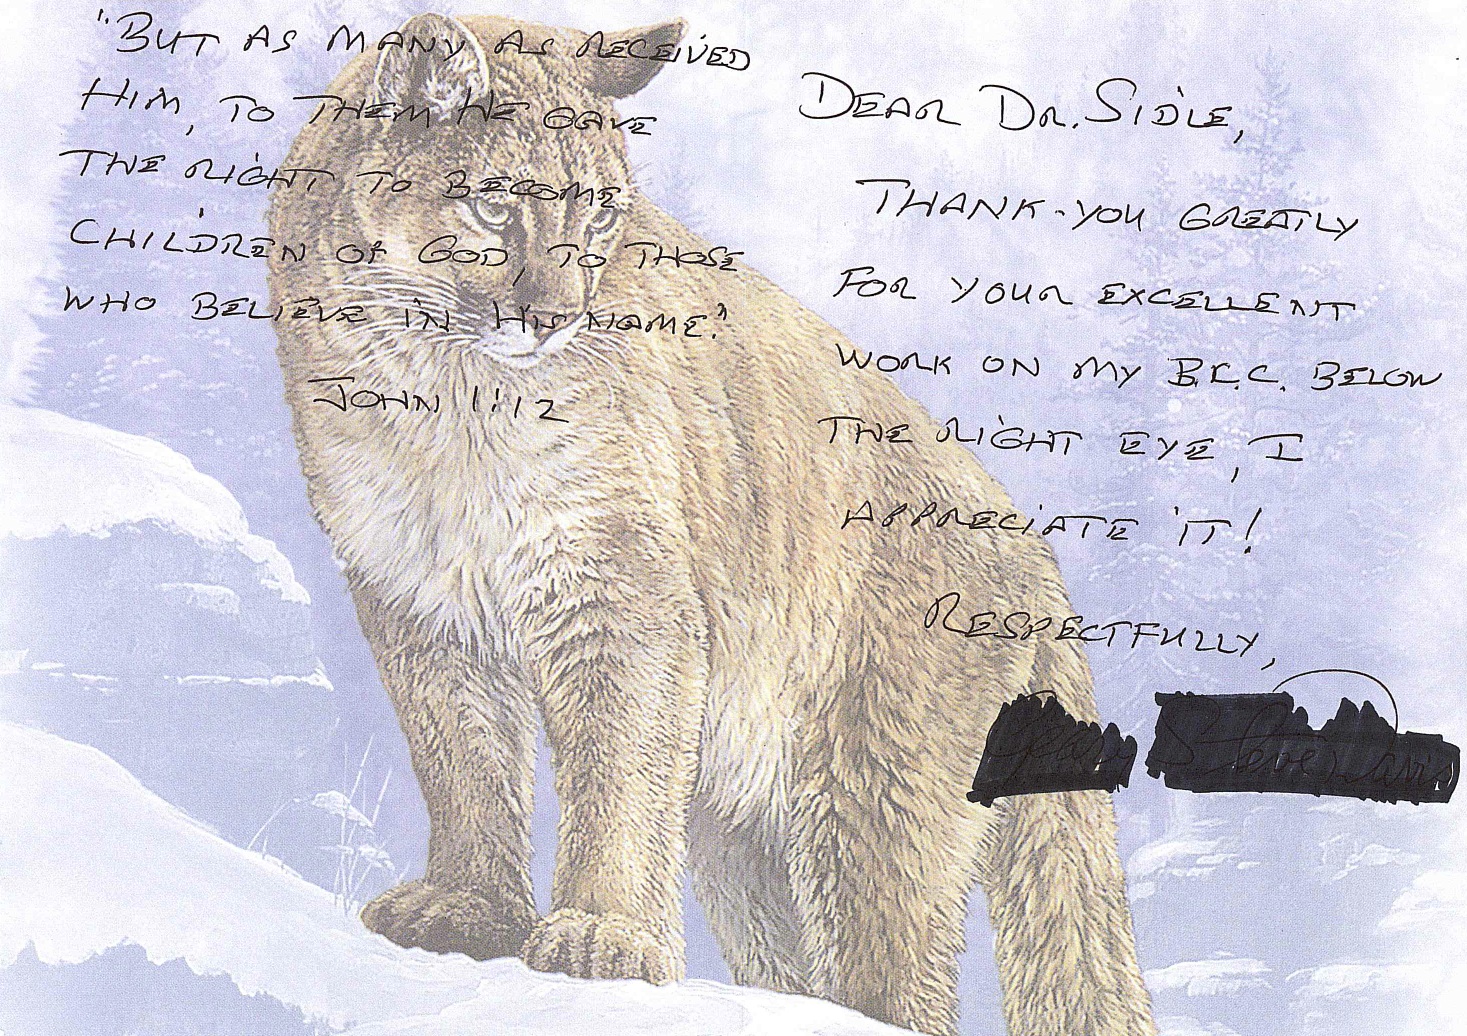 "BUT AS MANY AS RECEIVED
HIM, TO THEM HE GAVE
THE RIGHT TO BECOME
CHILDREN OF GOD, TO THOSE
WHO BELIEVE IN HIS NAME."
JOHN 1:12
DEAR DR. SIDLE,
THANK-YOU GREATLY
FOR YOUR EXCELLENT
WORK ON MY B.C.C. BELOW
THE RIGHT EYE, I
APPRECIATE IT!
RESPECTFULLY,